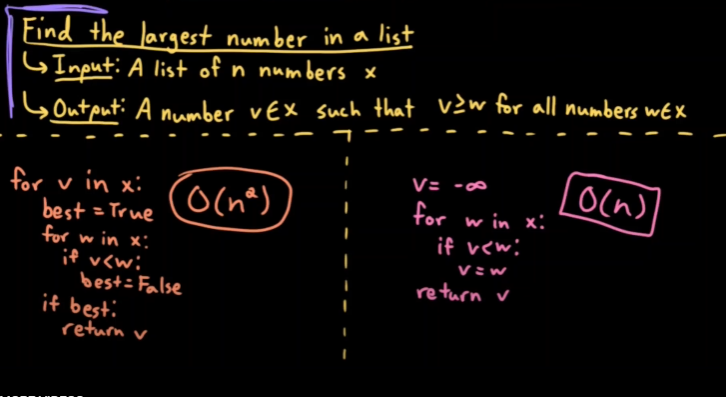 Find the largest number in a list
↳ Input: A list of n numbers x
↳ Output: A number v∈x such that v≥w for all numbers w∈x
for v in x:
best = True
for w in x:
if v<w:
best = False
if best:
return v
O(n²)
v = -∞
for w in x:
if v<w:
v = w
return v
O(n)